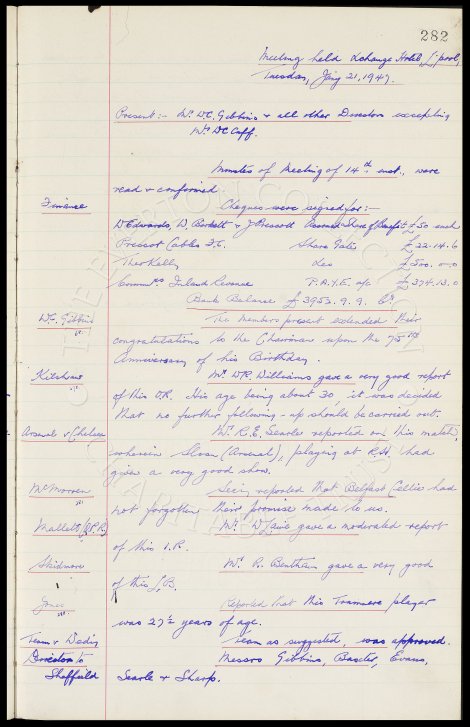 282
Meeting held Exchange Hotel, L'pool,
Tuesday, Jany 21, 1947.
Present :- Mr. W.C. Gibbins & all other Directors excepting
Mr. W.C. Cuff.
Minutes of Meeting of 14th inst., were
read & confirmed
Finance Cheques were signed for:-
W. Edwards, W. Borkett & J. Prescott Accrued Share of Benefit £50 each
Prescot Cables F.C. Share Gates £22.14.6
Theo Kelly £500.0.0
Commrs Inland Revenue P.A.Y.E. a/c £374.13.0
Bank Balance £3953.9.9. Cr.
W.C. Gibbins The members present extended their
congratulations to the Chairman upon the 75th
Anniversary of his Birthday.
Kilshaw Mr. W.R. Williams gave a very good report
of this O.R. His age being about 30, it was decided
that no further following-up should be carried out.
Arsenal v Chelsea Mr. R.E. Searle reported on this match,
wherein Sloan (Arsenal), playing at R.H. had
given a very good show.
McMorran Secy. reported that Belfast Celtic had
not forgotten their promise made to us.
Mallett (Q.P.R.) Mr. gave a moderated report
of this I.R.
Skidmore Mr. R. Bentham gave a very good
of this L.B.
Jones Reported that this Tranmere player
was 27½ years of age.
Team v Wed'y Team as suggested, was approved.
Directors to Messrs Gibbins, Baxter, Evans,
Sheffield Searle & Sharp.